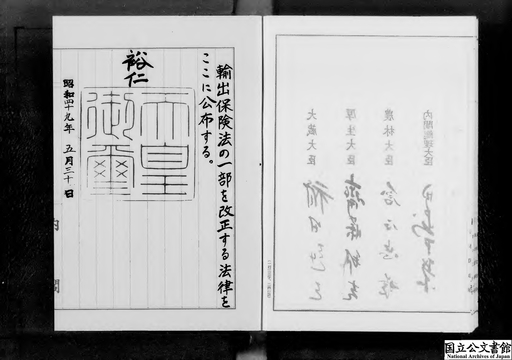 内閣総理大臣
農林大臣
厚生大臣
大蔵大臣
輸出保険法の一部を改正する法律を
ここに公布する。
裕仁
天皇
御璽
昭和四十九年 五月三十日
内 閣
国立公文書館
National Archives of Japan